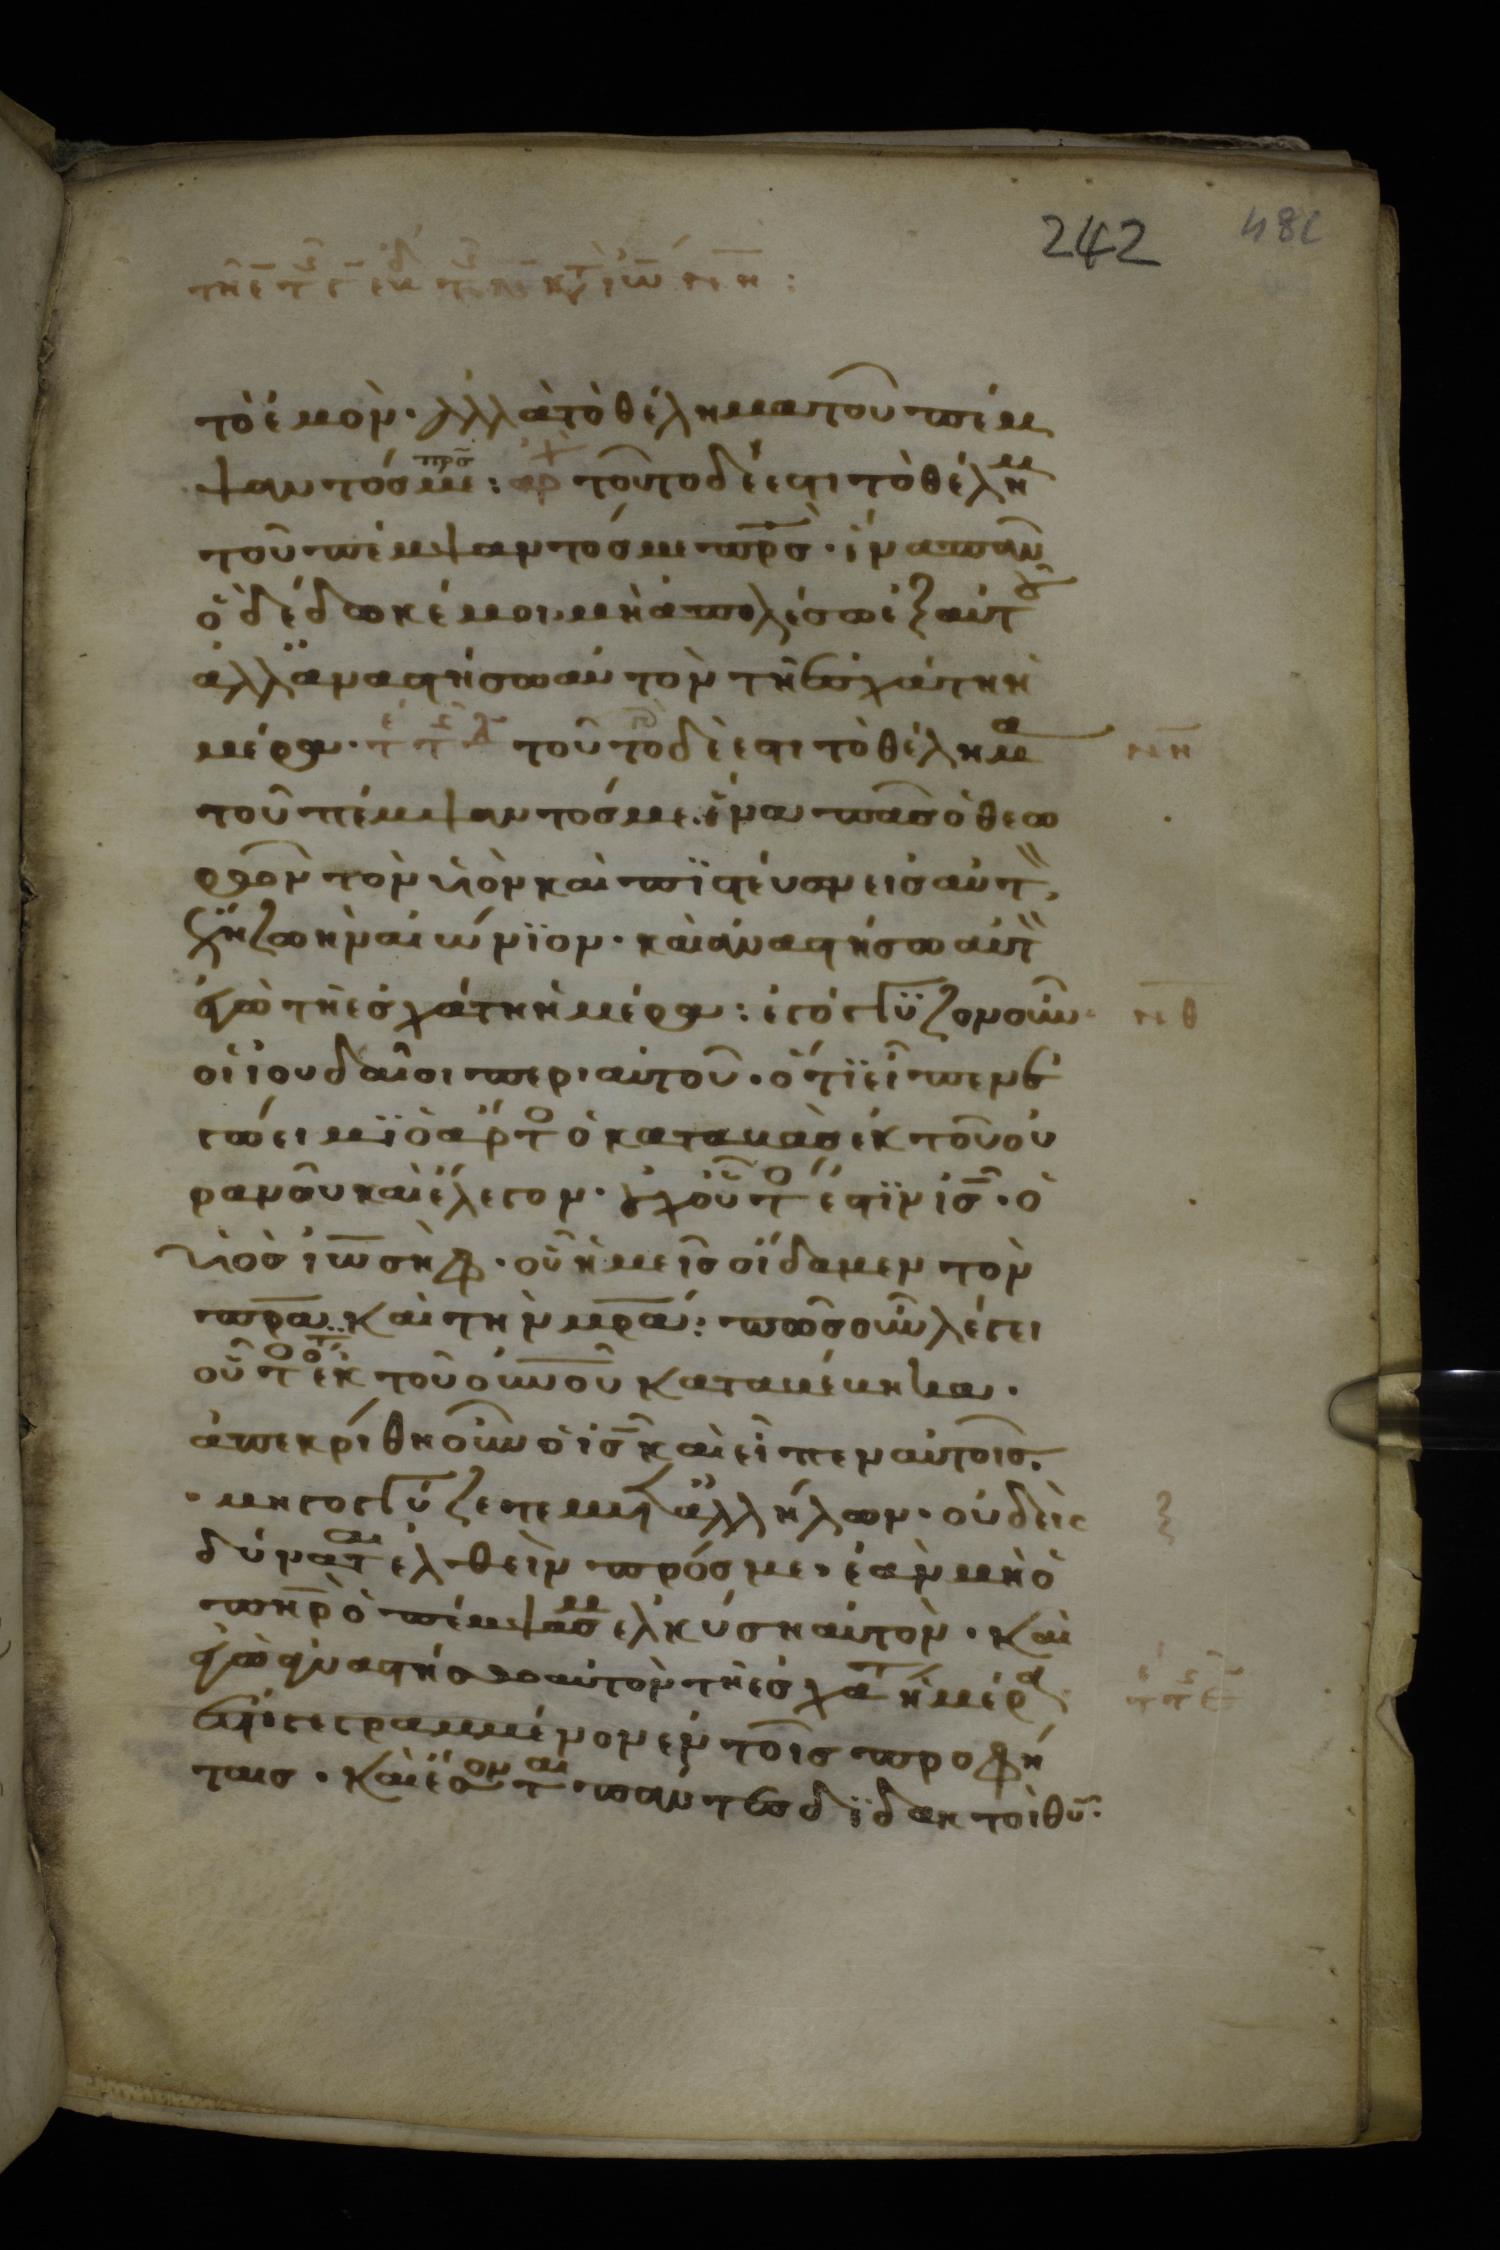 242
τὸ ἐμὸν· ἀλλὰ τὸ θέλημα τοῦ πέμ
ψαντός με πρσ: τοῦτο δέ ἐστι τὸ θέλημ
τοῦ πέμψαντός με πρσ· ἵνα πᾶν
ὃ δέδωκέ μοι μὴ ἀπολέσω ἐξ αὐτ
ἀλλὰ ἀναστήσω αὐτὸν τῇ ἐσχάτῃ ἡ
μέρα· τοῦτο δέ ἐστι τὸ θέλημα
νη
τοῦ πέμψαντός με ἵνα πᾶς ὁ θεω
ρῶν τὸν υἱὸν καὶ πιστεύων εἰς αὐτ
ἔχῃ ζωὴν αἰώνιον· καὶ ἀναστήσω αὐτ
ἐγὼ τῇ ἐσχάτῃ ἡμέρα: ἐγόγγυζον οὖν
νθ
οἱ ἰουδαῖοι περὶ αὐτοῦ· ὅτι εἶπεν ἐ
γώ εἰμι ὁ ἄρτο ὁ καταβὰς ἐκ τοῦ οὐ
ρανοῦ καὶ ἔλεγον· οὐχ οὗτο ἐστιν ἰς· ὁ
υἱὸς ἰωσὴφ· οὗ ἡμεῖς οἴδαμεν τὸν
πρα καὶ τὴν μρα: πῶς οὖν λέγει
οὗτο ὅτι ἐκ τοῦ οὐνοῦ καταβέβηκα·
ἀπεκρίθη οὖν ὁ ἰς καὶ εἶπεν αὐτοῖς·
μὴ γογγύζετε μετ ἀλλήλων· οὐδεὶς
δύναται ἐλθεῖν πρός με· ἐὰν μὴ ὁ
πηρ ὁ πέμψας με ἑλκύσῃ αὐτὸν· καὶ
ἐγὼ ἀναστήσω αὐτὸν τῇ ἐσχάτ ἡμέρα
ἔστι γεγραμμένον ἐν τοῖς προφή
ταις· καὶ ἔσονται πάντες διδακτοὶ θυ: